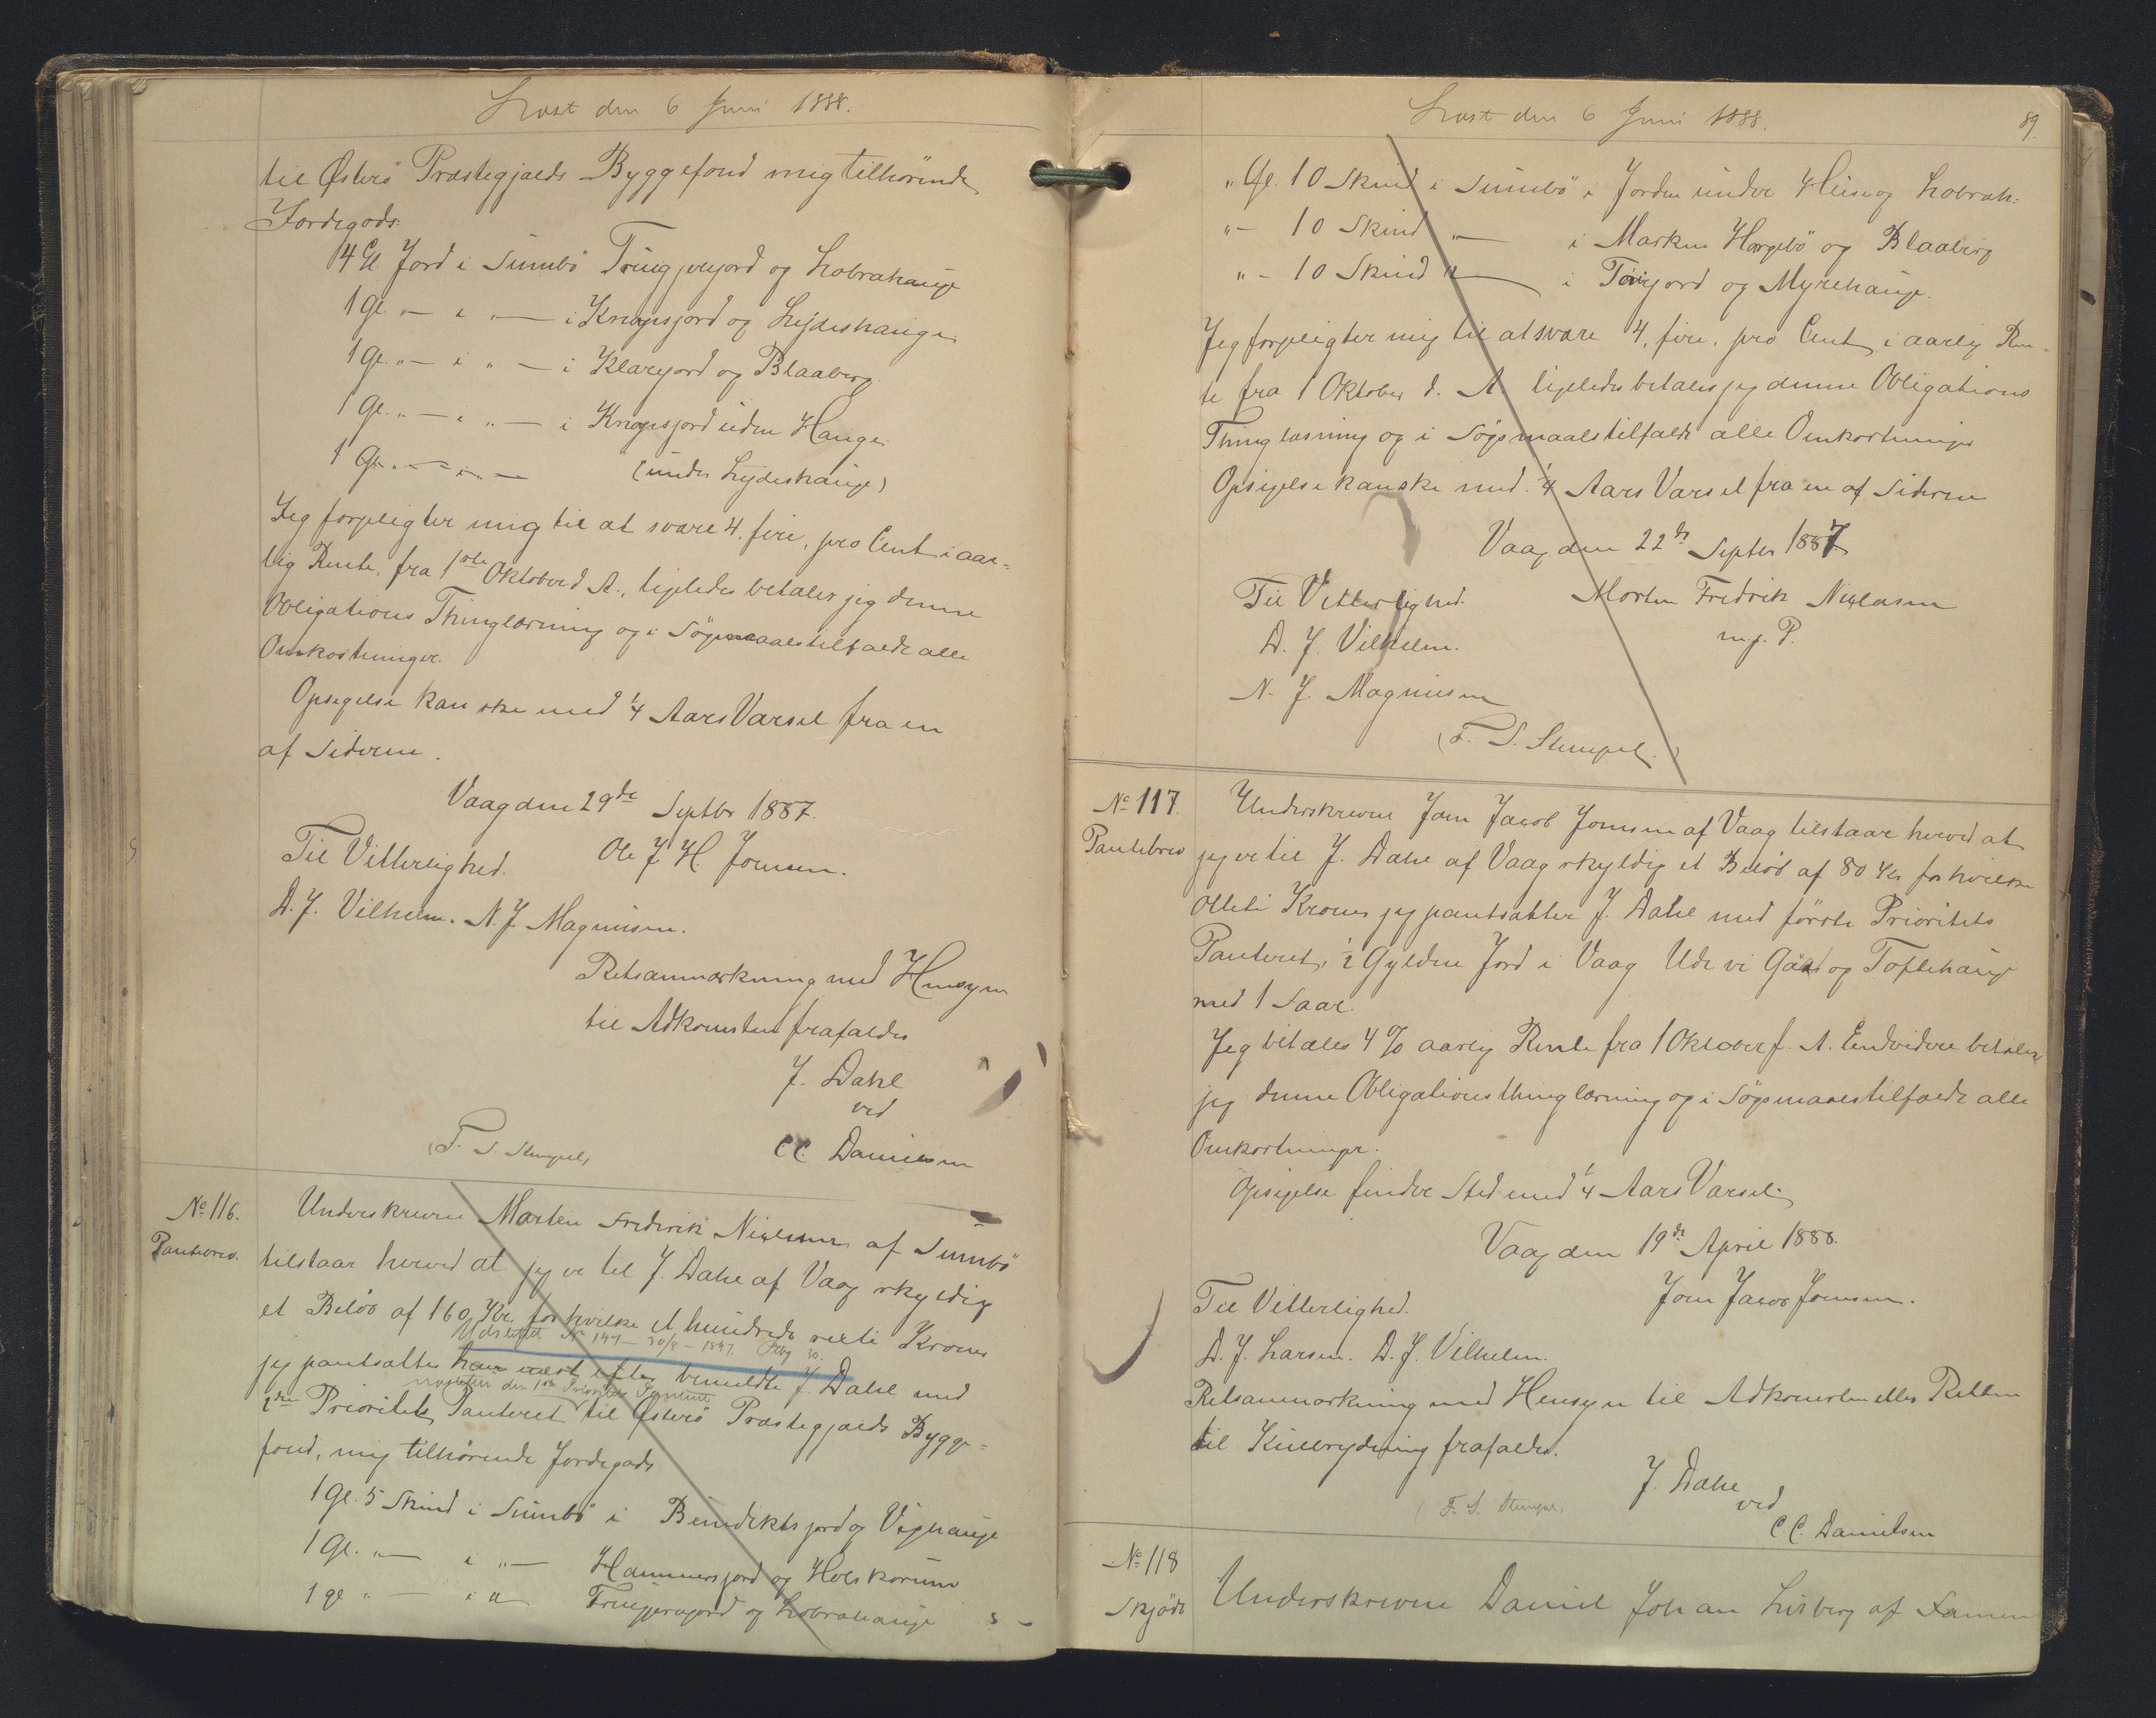 Læst den 6 Juni 1888.
til Østerö Præstegjælds Byggefond mig tilhörende
Jordegods:
4 Gl. Jord i Sumbö Truigjerjord og Lobrahauge
1 Gl. " — i " — i Knopsjord og Lejdeshauge
1 Gl. " — i " — i Klarejord og Blaaberg
1 Gl. " — i " — i Knopsjord uden Hauge
1 Gl. " — i " — (under Lejdeshauge)
Jeg forpligter mig til at svare 4, fire, pro Cent i aar-
lig Rente, fra 1ste Oktober d. A., ligeledes betaler jeg denne
Obligations Thinglæsning og i Søgsmaalstilfælde alle
Omkostninger.
Opsigelse kan ske med 1/4 Aars Varsel fra en
af Siderne.
Vaag den 29de Septbr 1887.
Til Vitterlighed. Ole J H Joensen.
D. J. Vilhelm. N. J. Magnussen.
Retsanmærkning med Hensyn
til Adkomsten frafaldes
J. Dahl
ved
C.C. Danielsen
(T. S. Stempel)
No 116.
Pantebrev.
Underskrevne Morten Fredrik Nielsen af Sumbö
tilstaar herved at jeg er til J. Dahl af Vaag skyldig
et Belöb af 160 Kr. for hvilke et hundrede sexti Kroner
Udslettet No 147 — 30/8 — 1897.
jeg pantsætter næst efter bemeldte J. Dahl med
næstefter den 1ste Prioritets Panteret
2den Prioritets Panteret til Østerö Præstegjælds Bygge-
fond, mig tilhörende Jordegods
1 Gl. 5 Skind i Sumbö i Benedikts jord og Vighauge
1 Gl. " — i " — Hammersjord og Hols
1 gl " — i " Truigjerajord og Lobrahauge
Læst den 6 Juni 1888.
89.
" Gl. 10 Skind i Sumbö i Jorden under Huse og Lobrah:
" — 10 Skind " — i Marken Horgebö og Blaaberg
" — 10 Skind " — i Torvjord og Myrehauge.
Jeg forpligter mig til at svare 4, fire, pro Cent i aarlig Ren-
te fra 1 Oktober d. A. ligeledes betaler jeg denne Obligations
Thinglæsning og i Søgsmaalstilfælde alle Omkostninger
Opsigelse kan ske med 1/4 Aars Varsel fra en af Siderne
Vaag den 22de Septbr 1887
Til Vitterlighed. Morten Fredrik Nielsen
D. J. Vilhelm. m. f. P.
N. J. Magnussen
(T. S. Stempel.)
No 117.
Pantebrev
Underskrevne Joen Jacob Joensen af Vaag tilstaar herved at
jeg er til J. Dahl af Vaag skyldig et Belöb af 80 Kr for hvilke
Otteti Kroner jeg pantsætter J. Dahl med förste Prioritets
Panteret, 1/2 Gylden Jord i Vaag Ude vi Gaard og Toftehauge
med 1 Faar.
Jeg betaler 4 % aarlig Rente fra 1 Oktober f. A. Endvidere betaler
jeg denne Obligations thinglæsning og i Søgsmaalstilfælde alle
Omkostninger.
Opsigelse finder Sted med 1/4 Aars Varsel.
Vaag den 19de April 1888.
Til Vitterlighed. Joen Jacob Joensen.
D. J. Larsen. D. J. Vilhelm.
Retsanmærkning med Hensyn til Adkomsten eller Retten
til Kuldrydning frafaldes.
J. Dahl
ved
(T. S. Stempel.)
C. C. Danielsen
No 118
Skjöde
Underskrevne Daniel Johan Lisberg af Famien